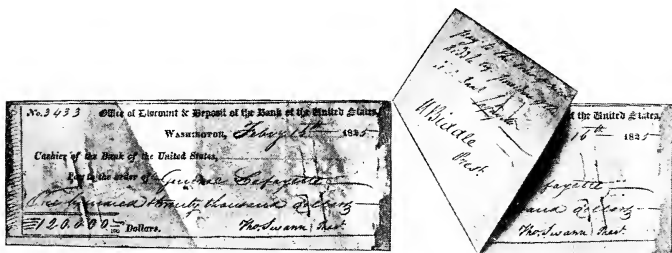 No. 3433 Office of Discount & Deposit of the Bank of the United States,
WASHINGTON, Feby 16th 1825
Cashier of the Bank of the United States,
Pay to the order of General Lafayette
One hundred & twenty thousand dollars
$120,000 Dollars.
Tho. Swann Prest.
pay to the order
N Biddle
Prest.
of the United States,
16th 1825
fayette
sand dollars
Tho. Swann Prest.